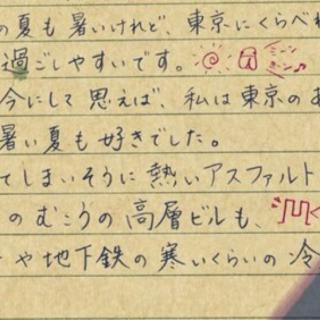 の夏も暑いけれど、東京にくらべ
過ごしやすいです。 ミーン ミーン♪
今にして思えば、私は東京のあ
暑い夏も好きでした。
てしまいそうに熱いアスファルト
のむこうの高層ビルも、
や地下鉄の寒いくらいの冷